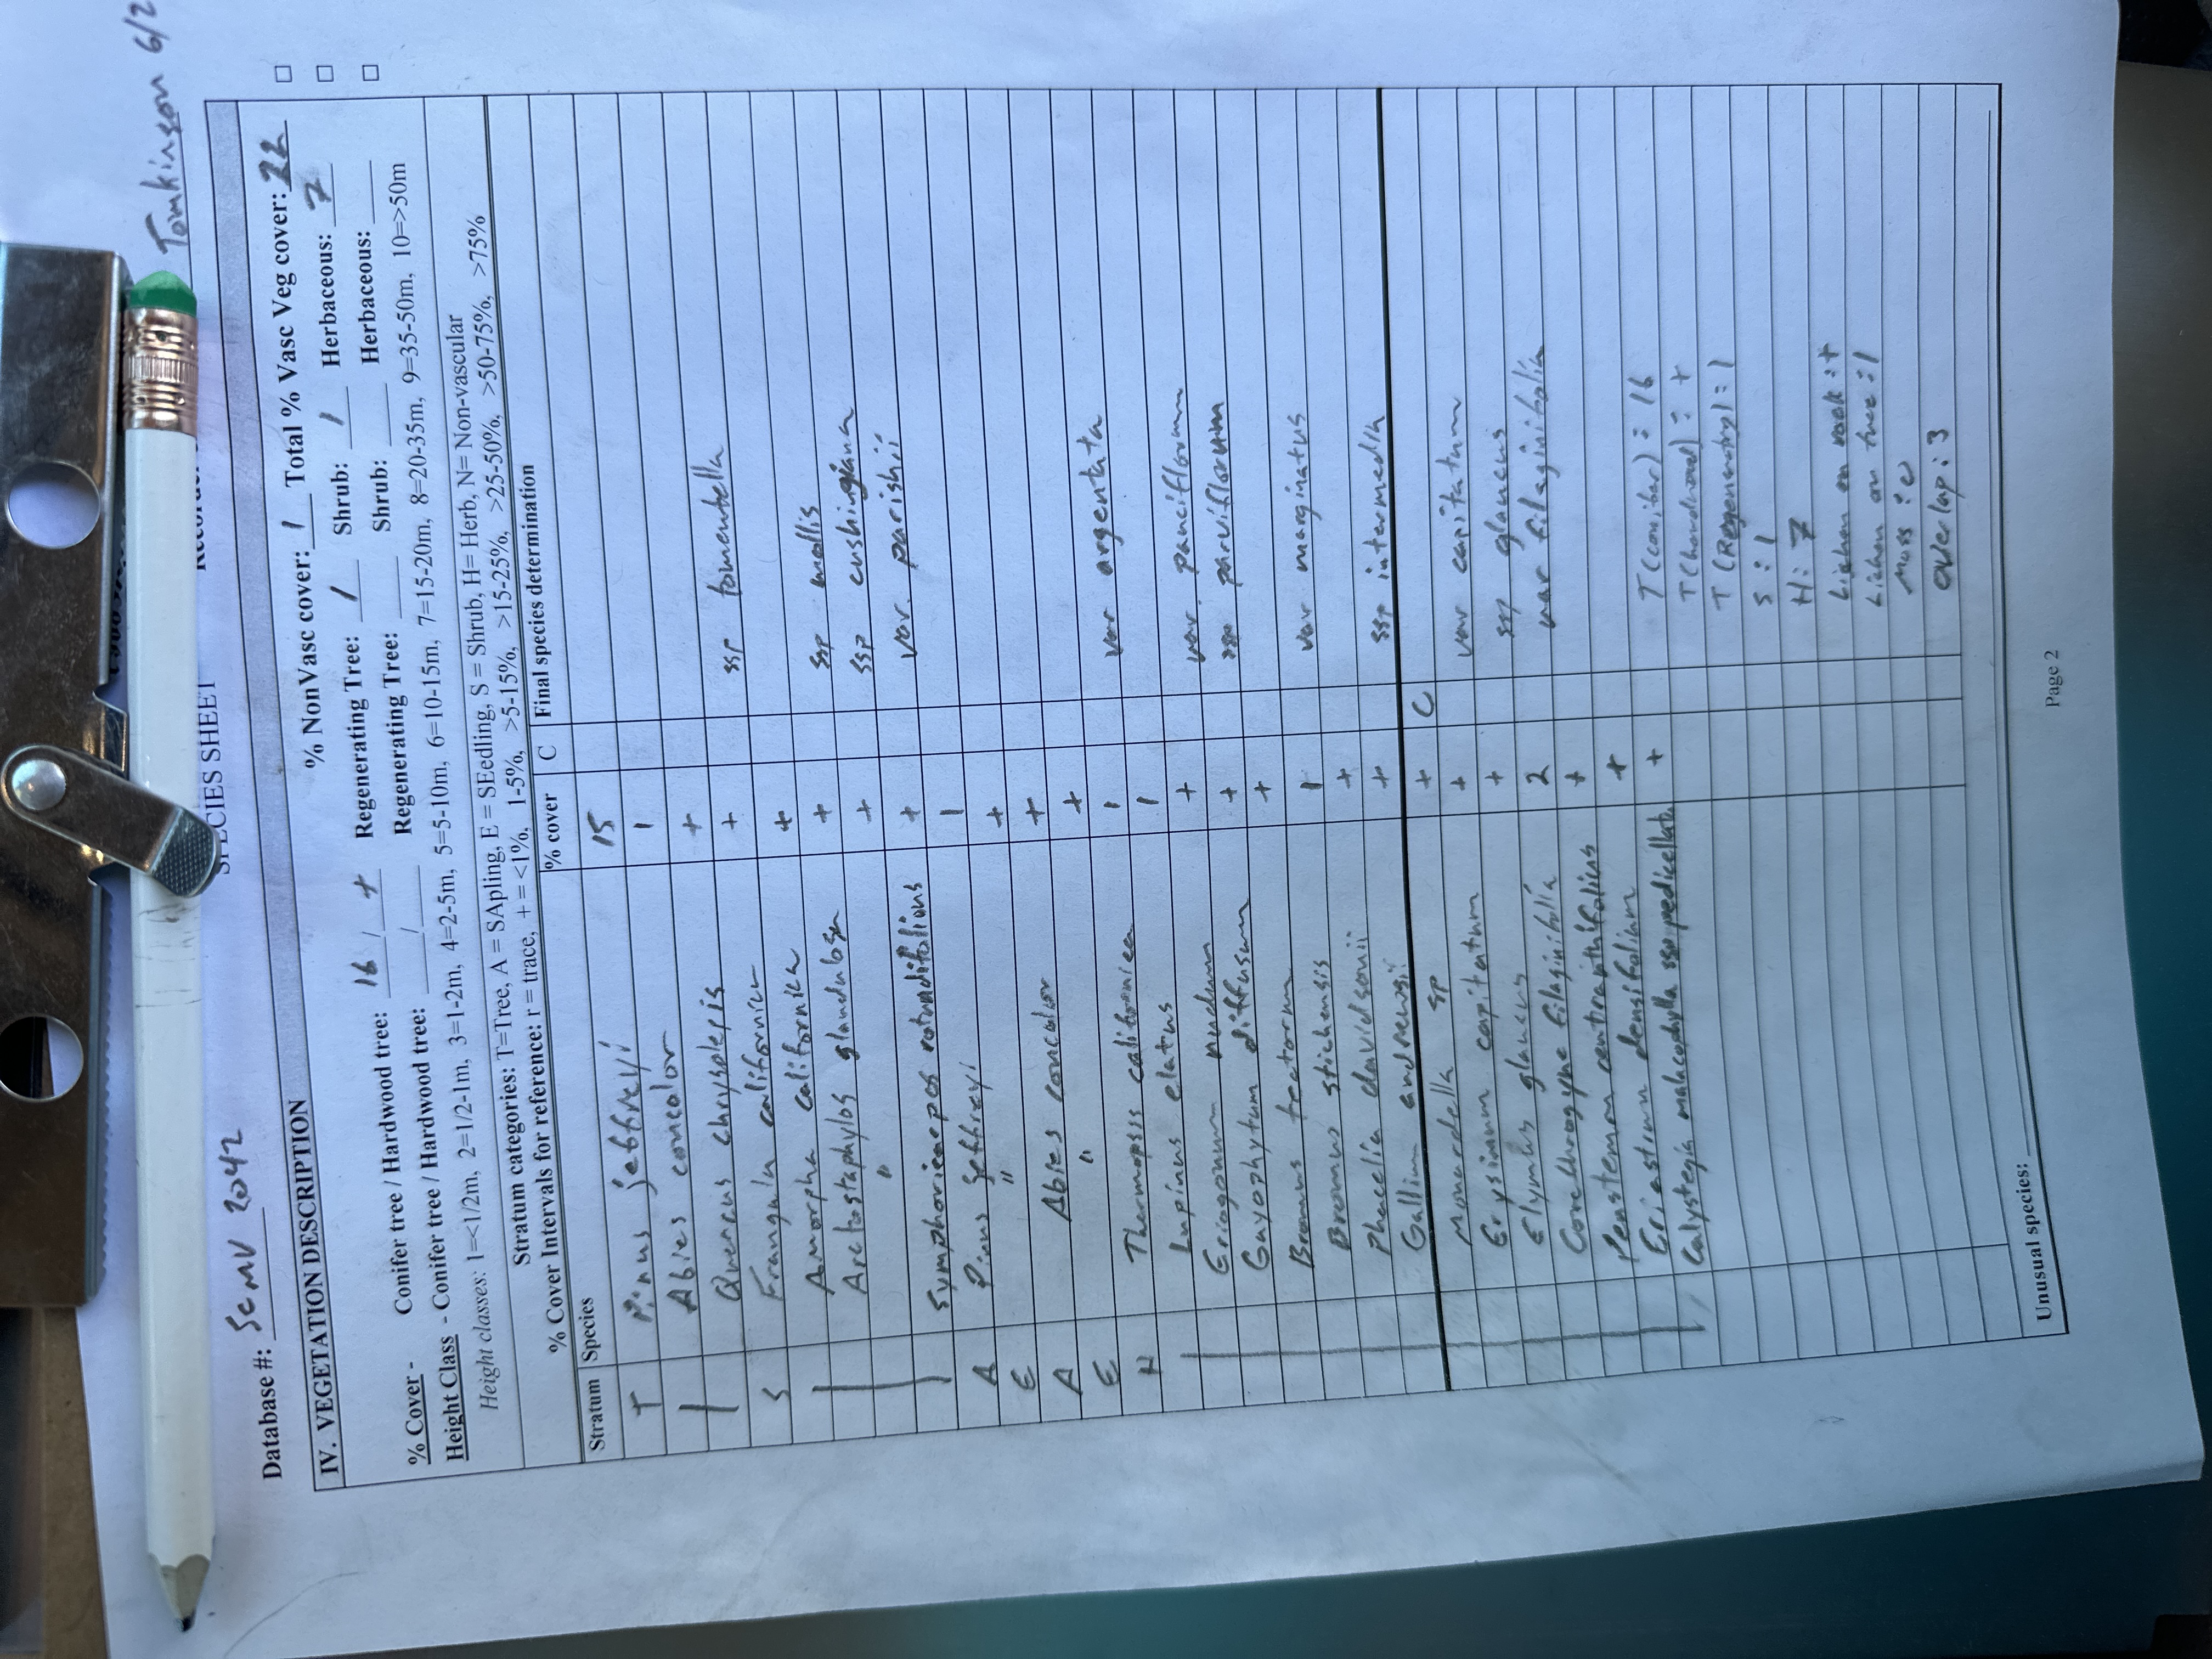 Tomkinson 6/2
SPECIES SHEET
Database #: SCMV 2042
IV. VEGETATION DESCRIPTION
% NonVasc cover: 1 Total % Vasc Veg cover: 22
% Cover - Conifer tree / Hardwood tree: 16 / + Regenerating Tree: 1 Shrub: 1 Herbaceous: 7
Height Class - Conifer tree / Hardwood tree: / Regenerating Tree: Shrub: Herbaceous:
Height classes: 1=<1/2m, 2=1/2-1m, 3=1-2m, 4=2-5m, 5=5-10m, 6=10-15m, 7=15-20m, 8=20-35m, 9=35-50m, 10=>50m
Stratum categories: T=Tree, A = SApling, E = SEedling, S = Shrub, H= Herb, N= Non-vascular
% Cover Intervals for reference: r = trace, + = <1%, 1-5%, >5-15%, >15-25%, >25-50%, >50-75%, >75%
Stratum Species % cover C Final species determination
T Pinus jeffreyi 15
Abies concolor 1
Quercus chrysolepis +
S Frangula californica + ssp tomentella
Amorpha californica +
Arctostaphylos glandulosa + ssp mollis
" + ssp cushingiana
Symphoricarpos rotundifolius + var. parishii
A Pinus jeffreyi 1
E " +
A Abies concolor +
E " +
H Thermopsis californica 1 var argentata
Lupinus elatus 1
Eriogonum nudum + var. pauciflorum
Gayophytum diffusum + ssp parviflorum
Bromus +
Bromus sitchensis 1 var marginatus
Phacelia davidsonii +
Gallium andrewsii + ssp intermedia
Monardella sp + C
Erysimum capitatum + var capitatum
Elymus glaucus + ssp glaucus
Corethrogyne filaginifolia 2 var filaginifolia
Penstemon centranthifolius +
Eriastrum densifolium +
Calystegia malacophylla ssp pedicellata +
T (conifer) = 16
T (hardwood) = +
T (Regenerating) = 1
S : 1
H : 7
Lichen on rock : +
Lichen on tree : 1
Moss : 0
overlap : 3
Unusual species:
Page 2